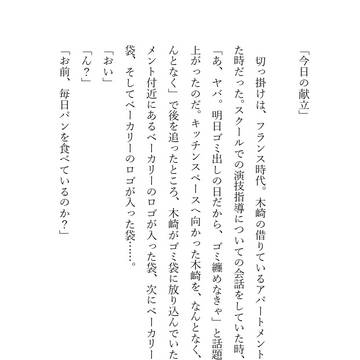 「今日の献立」
切っ掛けは、フランス時代。木崎の借りているアパートメン
た時だった。スクールでの演技指導についての会話をしていた時、
「あ、ヤバ。明日ゴミ出しの日だから、ゴミ纏めなきゃ」と話題
上がったのだ。キッチンスペースへ向かった木崎を、なんとなく、
んとなく」で後を追ったところ、木崎がゴミ袋に放り込んでいた
メント付近にあるベーカリーのロゴが入った袋、次にベーカリー
袋、そしてベーカリーのロゴが入った袋……。
「おい」
「ん？」
「お前、毎日パンを食べているのか？」